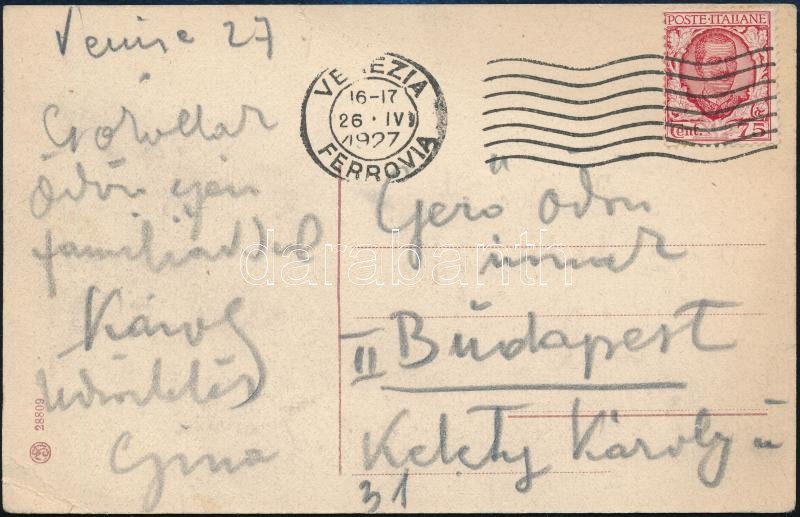 Venise 27
Ödön
familiáddal
Károly
üdvözlés
Gina
VENEZIA
16-17
26 · IV
1927
FERROVIA
POSTE·ITALIANE
Cent. 75
Gerő Ödön
úrnak
II Budapest
Kelety Károly u
31
28809
darabanth